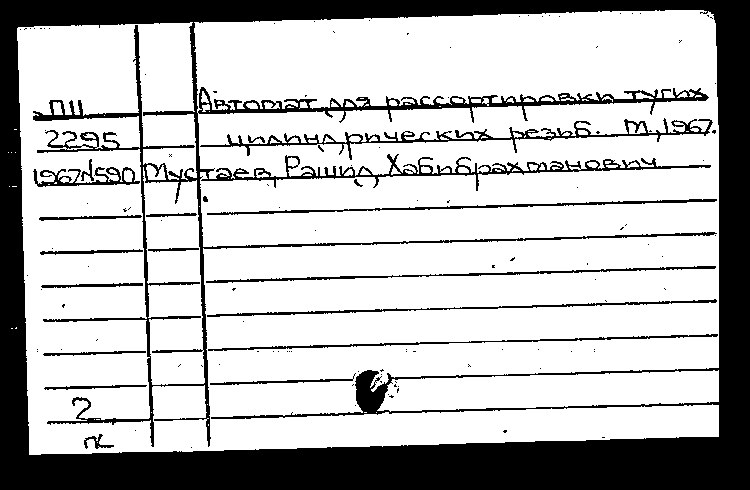 П11 Автомат для рассортировки тугих
2295 цилиндрических резьб. М., 1967.
1967№590 Мустаев, Рашид Хабибрахманович
2
к